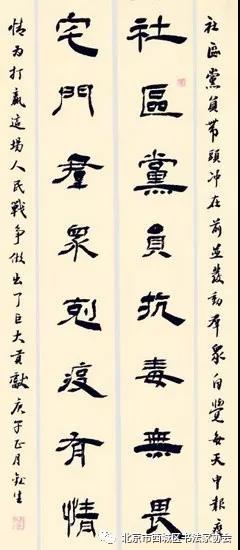 社區黨員帶頭冲在前並發動羣眾自覺每天申報疫
社區黨員抗毒無畏
宅門羣眾剋疫有情
情为打贏這場人民戰争做出了巨大貢獻庚子正月生
北京市西城区书法家协会